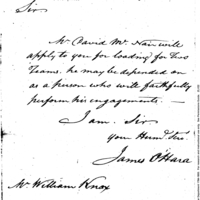 Sir
Mr David Mc Nair will
apply to you for loading for two
Teams. he may be depended on
as a person who will faithfully
perform his engagements. —
I am Sir
your Humb. Ser.
James O'Hara
Mr William Knox